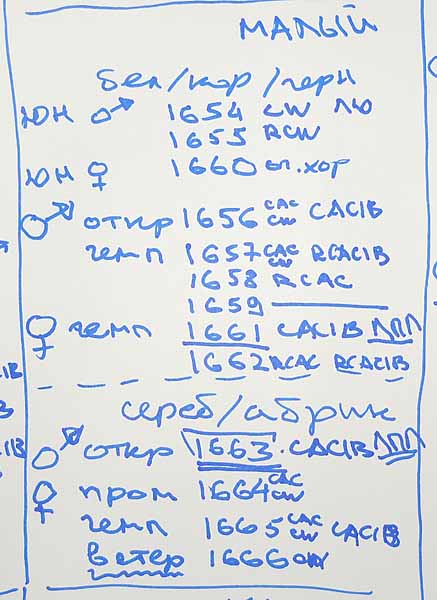 МАЛЫЙ
бел/кор/черн
ЮН ♂ 1654 CW ЛЮ
1655 RCW
ЮН ♀ 1660 оч.хор
♂ откр 1656 CAC CW CACIB
чемп 1657 CAC CW RCACIB
1658 RCAC
1659 ———
♀ чемп 1661 CACIB ЛПП
1662 RCAC RCACIB
сереб/абрик
♂ откр 1663. CACIB ЛПП
♀ пром 1664 CAC CW
чемп 1665 CAC CW CACIB
ветер 1666 CW